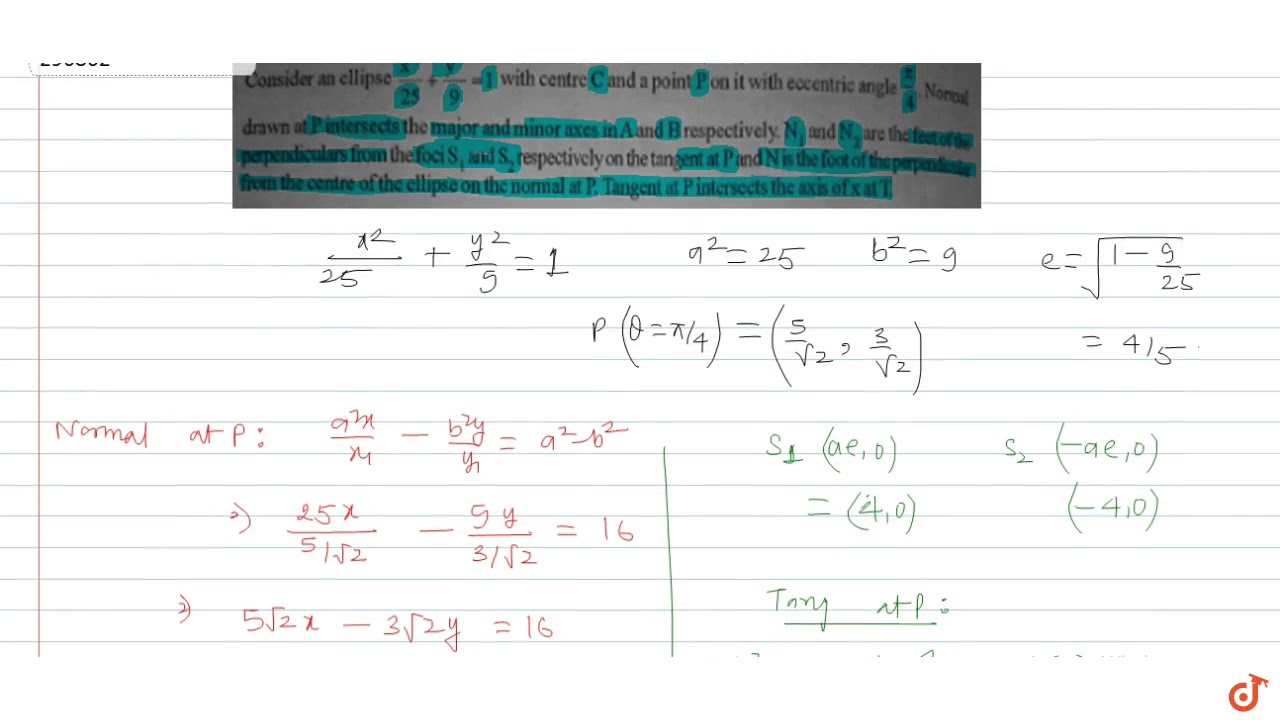 Consider an ellipse x/25 + y/9 = 1 with centre C and a point P on it with eccentric angle π/4. Normal
drawn at P intersects the major and minor axes in A and B respectively. N₁ and N₂ are the feet of the
perpendiculars from the foci S₁ and S₂ respectively on the tangent at P and N is the foot of the perpendicular
from the centre of the ellipse on the normal at P. Tangent at P intersects the axis of x at T.
x²/25 + y²/9 = 1 a² = 25 b² = 9 e = √(1 - 9/25)
P (θ = π/4) = (5/√2, 3/√2) = 4/5
Normal at P: a²x/x₁ - b²y/y₁ = a² - b²
⇒) 25x/(5/√2) - 9y/(3/√2) = 16
⇒) 5√2x - 3√2y = 16
S₁ (ae, 0) S₂ (-ae, 0)
= (4, 0) (-4, 0)
Tang at P: